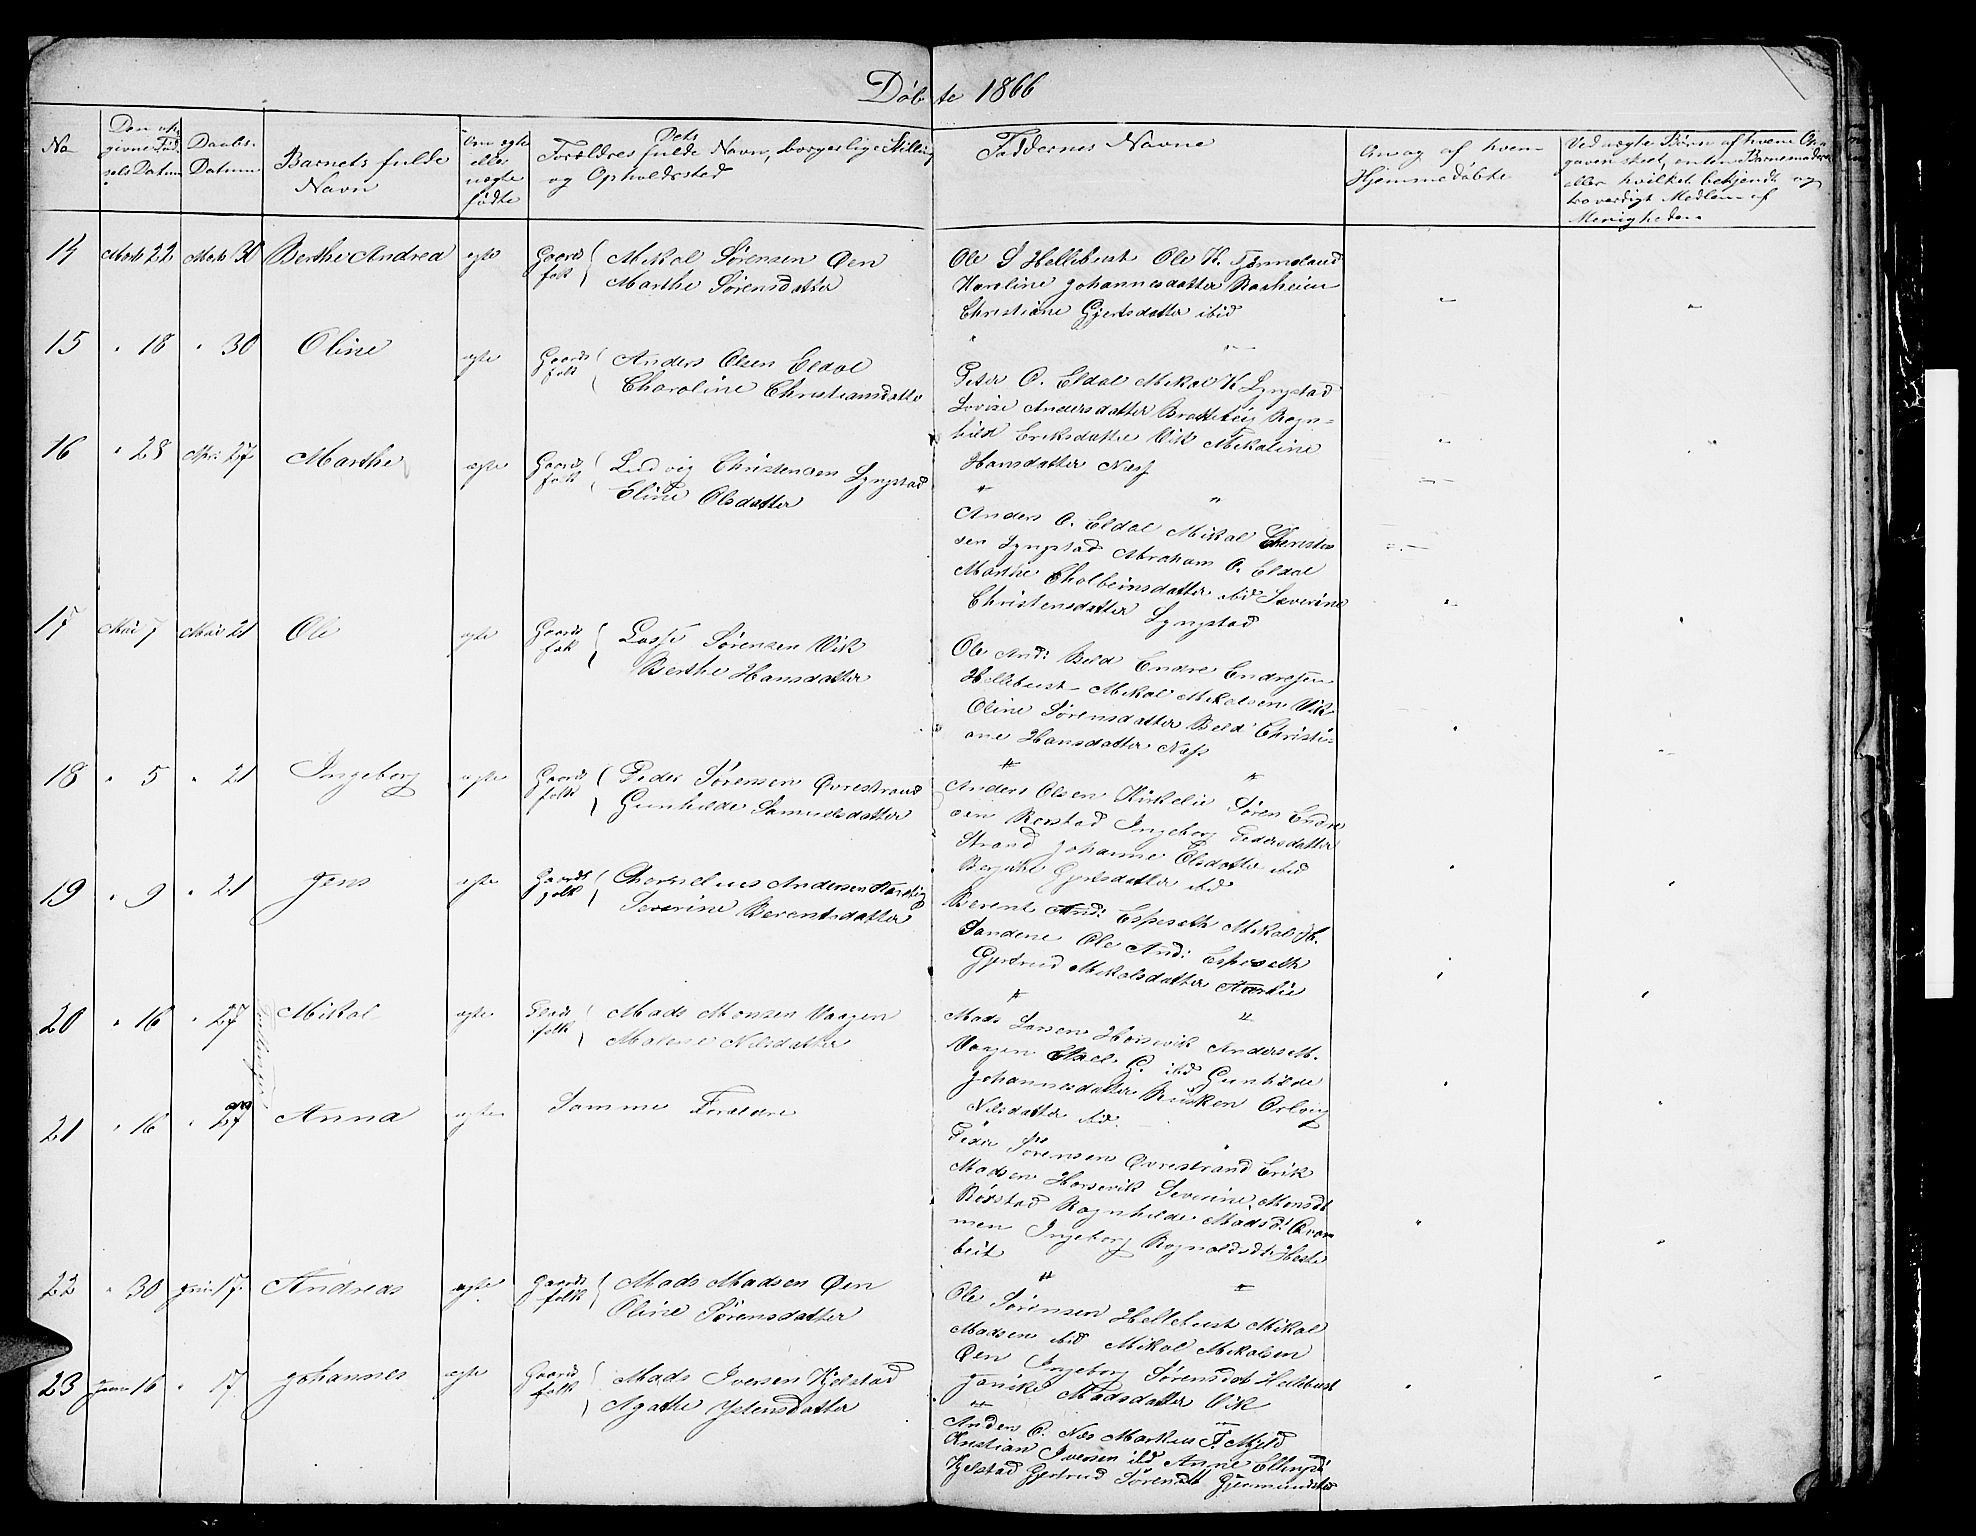 Døbte 1866
No
Den opgivne Fødsels Datum
Daabs-Datum
Barnets fulde Navn
Om ægte eller uægte fødte
Dets Forældres fulde Navn, borgerlige Stilling og Opholdssted
Faddernes Navne
Om og af hvem Hjemmedøbte
Ved uægte Børn af hvem Opgaven skeet, enten Barnemoderen eller hvilket bekjendt og troværdigt Medlem af Menigheden
14 Marts 22 Marts 30 Berthe Andrea ægte Gaardfolk Mikal Sørensen Øen
Marthe Sørensdatter
Ole S Hellebust Ole K. Tjønneland
Karoline Johannesdatter
Christiane Gjertsdatter ibid
15 " 18 " 30 Oline ægte Gaardsfolk Anders Olsen Eldal
Charoline Christiansdatter
Peter O. Eldal Mikal K Lyngstad
Lovise Andersdatter Ragn-
hild Eriksdatter Vik Mikaline
Hansdatter Næss
16 " 28 April 27 Marthe ægte Gaardsfolk Ludvig Christensen Lyngstad
Eline Olsdatter
Anders O. Eldal Mikal Christen
sen Lyngstad Abraham O. Eldal
Marthe ibid Severine
Christensdatter Lyngstad
17 Mai 7 Mai 21 Ole ægte Gaardsfolk Lasse Sørensen Vik
Berthe Hansdatter
Ole And: Beld Endre Endresen
Hellebust Mikal Mikalsen Vik
Oline Sørensdatter Beld Christi-
ane Hansdatter Næss
18 " 5 " 21 Ingeborg ægte Gaardsfolk Peder Sørensen Øvrestrand
Gunhilde Samuelsdatter
Anders Olsen Kirkelie Søren Endre
sen Rørstad Ingeborg Pedersdatter
Strand Johanne Olsdatter ibid
Gjertsdatter ibid
19 " 9 " 21 Jens ægte Gaardsfolk Chornelius Andersen
Severine Berentsdatter
Berent And: Espeseth Mikal H.
Sandene Ole And: Espeseth
Gjertrud Mikalsdatter
20 " 16 " 27 Mikal ægte folk Mads Monsen Vaagen
Malene Nilsdatter
Mads Larsen Horsevik Anders M.
Vaagen ibid Gunhilde
Johannesdatter
Nilsdatter ibid.
Tvillinger
21 " 16 " 27 Anna ægte Samme Forældre
Peder Sørensen Øvrestrand Erik
Madsen Horsevik Severine Monsdt
Rørstad Ragnhilde Madsd:
men Ingeborg Heste
beit
22 " 30 Juni 17 Andreas ægte Gaardsfolk Mads Madsen Øen
Oline Sørensdatter
Ole Sørensen Hellebust Mikal
Madsen ibid Mikal Mikalsen
Øen Ingeborg Sørensdt Hellebust
Janike Madsdatter Vik
23 Juni 16 " 17 Johannes ægte Gaardsfolk Mads Iversen Kjelstad
Agathe Ystensdatter
Anders O. Næs Markus T. Mjeld
Kristian Iversen ibd Anne Ellingsd
Kjelstad Gjertrud Sørensdt Gjermundstad